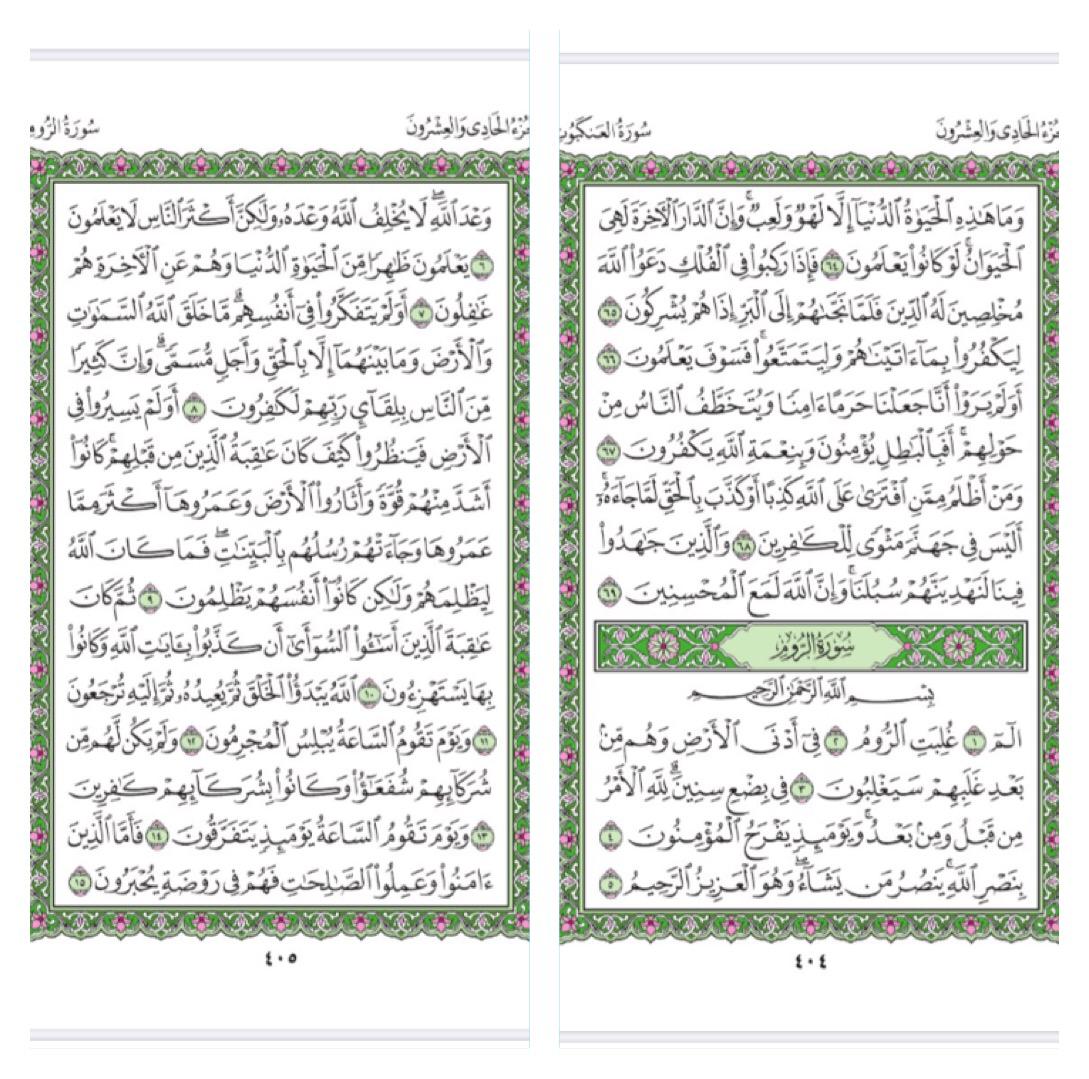 جُزْءُ الحَادِى وَالعِشْرُونَ
سُورَةُ العَنكَبُوت
وَمَا هَٰذِهِ ٱلْحَيَوٰةُ ٱلدُّنْيَآ إِلَّا لَهْوٌ وَلَعِبٌ ۚ وَإِنَّ ٱلدَّارَ ٱلْـَٔاخِرَةَ لَهِىَ
ٱلْحَيَوَانُ ۚ لَوْ كَانُوا۟ يَعْلَمُونَ ٦٤ فَإِذَا رَكِبُوا۟ فِى ٱلْفُلْكِ دَعَوُا۟ ٱللَّهَ
مُخْلِصِينَ لَهُ ٱلدِّينَ فَلَمَّا نَجَّىٰهُمْ إِلَى ٱلْبَرِّ إِذَا هُمْ يُشْرِكُونَ ٦٥
لِيَكْفُرُوا۟ بِمَآ ءَاتَيْنَٰهُمْ وَلِيَتَمَتَّعُوا۟ ۖ فَسَوْفَ يَعْلَمُونَ ٦٦
أَوَلَمْ يَرَوْا۟ أَنَّا جَعَلْنَا حَرَمًا ءَامِنًا وَيُتَخَطَّفُ ٱلنَّاسُ مِنْ
حَوْلِهِمْ ۚ أَفَبِٱلْبَٰطِلِ يُؤْمِنُونَ وَبِنِعْمَةِ ٱللَّهِ يَكْفُرُونَ ٦٧
وَمَنْ أَظْلَمُ مِمَّنِ ٱفْتَرَىٰ عَلَى ٱللَّهِ كَذِبًا أَوْ كَذَّبَ بِٱلْحَقِّ لَمَّا جَآءَهُۥٓ ۚ
أَلَيْسَ فِى جَهَنَّمَ مَثْوًى لِّلْكَٰفِرِينَ ٦٨ وَٱلَّذِينَ جَٰهَدُوا۟
فِينَا لَنَهْدِيَنَّهُمْ سُبُلَنَا ۚ وَإِنَّ ٱللَّهَ لَمَعَ ٱلْمُحْسِنِينَ ٦٩
سُورَةُ الرُّومِ
بِسْمِ ٱللَّهِ ٱلرَّحْمَٰنِ ٱلرَّحِيمِ
الٓمٓ ١ غُلِبَتِ ٱلرُّومُ ٢ فِىٓ أَدْنَى ٱلْأَرْضِ وَهُم مِّنۢ
بَعْدِ غَلَبِهِمْ سَيَغْلِبُونَ ٣ فِى بِضْعِ سِنِينَ ۗ لِلَّهِ ٱلْأَمْرُ
مِن قَبْلُ وَمِنۢ بَعْدُ ۚ وَيَوْمَئِذٍ يَفْرَحُ ٱلْمُؤْمِنُونَ ٤
بِنَصْرِ ٱللَّهِ ۚ يَنصُرُ مَن يَشَآءُ ۖ وَهُوَ ٱلْعَزِيزُ ٱلرَّحِيمُ ٥
٤٠٤
جُزْءُ الحَادِى وَالعِشْرُونَ
سُورَةُ الرُّومِ
وَعْدَ ٱللَّهِ ۖ لَا يُخْلِفُ ٱللَّهُ وَعْدَهُۥ وَلَٰكِنَّ أَكْثَرَ ٱلنَّاسِ لَا يَعْلَمُونَ
٦ يَعْلَمُونَ ظَٰهِرًا مِّنَ ٱلْحَيَوٰةِ ٱلدُّنْيَا وَهُمْ عَنِ ٱلْـَٔاخِرَةِ هُمْ
غَٰفِلُونَ ٧ أَوَلَمْ يَتَفَكَّرُوا۟ فِىٓ أَنفُسِهِم ۗ مَّا خَلَقَ ٱللَّهُ ٱلسَّمَٰوَٰتِ
وَٱلْأَرْضَ وَمَا بَيْنَهُمَآ إِلَّا بِٱلْحَقِّ وَأَجَلٍ مُّسَمًّى ۗ وَإِنَّ كَثِيرًا
مِّنَ ٱلنَّاسِ بِلِقَآئِ رَبِّهِمْ لَكَٰفِرُونَ ٨ أَوَلَمْ يَسِيرُوا۟ فِى
ٱلْأَرْضِ فَيَنظُرُوا۟ كَيْفَ كَانَ عَٰقِبَةُ ٱلَّذِينَ مِن قَبْلِهِمْ ۚ كَانُوٓا۟
أَشَدَّ مِنْهُمْ قُوَّةً وَأَثَارُوا۟ ٱلْأَرْضَ وَعَمَرُوهَآ أَكْثَرَ مِمَّا
عَمَرُوهَا وَجَآءَتْهُمْ رُسُلُهُم بِٱلْبَيِّنَٰتِ ۖ فَمَا كَانَ ٱللَّهُ
لِيَظْلِمَهُمْ وَلَٰكِن كَانُوٓا۟ أَنفُسَهُمْ يَظْلِمُونَ ٩ ثُمَّ كَانَ
عَٰقِبَةَ ٱلَّذِينَ أَسَٰٓـُٔوا۟ ٱلسُّوٓأَىٰٓ أَن كَذَّبُوا۟ بِـَٔايَٰتِ ٱللَّهِ وَكَانُوا۟
بِهَا يَسْتَهْزِءُونَ ١٠ ٱللَّهُ يَبْدَؤُا۟ ٱلْخَلْقَ ثُمَّ يُعِيدُهُۥ ثُمَّ إِلَيْهِ تُرْجَعُونَ
١١ وَيَوْمَ تَقُومُ ٱلسَّاعَةُ يُبْلِسُ ٱلْمُجْرِمُونَ ١٢ وَلَمْ يَكُن لَّهُم مِّن
شُرَكَآئِهِمْ شُفَعَٰٓؤُا۟ وَكَانُوا۟ بِشُرَكَآئِهِمْ كَٰفِرِينَ
١٣ وَيَوْمَ تَقُومُ ٱلسَّاعَةُ يَوْمَئِذٍ يَتَفَرَّقُونَ ١٤ فَأَمَّا ٱلَّذِينَ
ءَامَنُوا۟ وَعَمِلُوا۟ ٱلصَّٰلِحَٰتِ فَهُمْ فِى رَوْضَةٍ يُحْبَرُونَ ١٥
٤٠٥